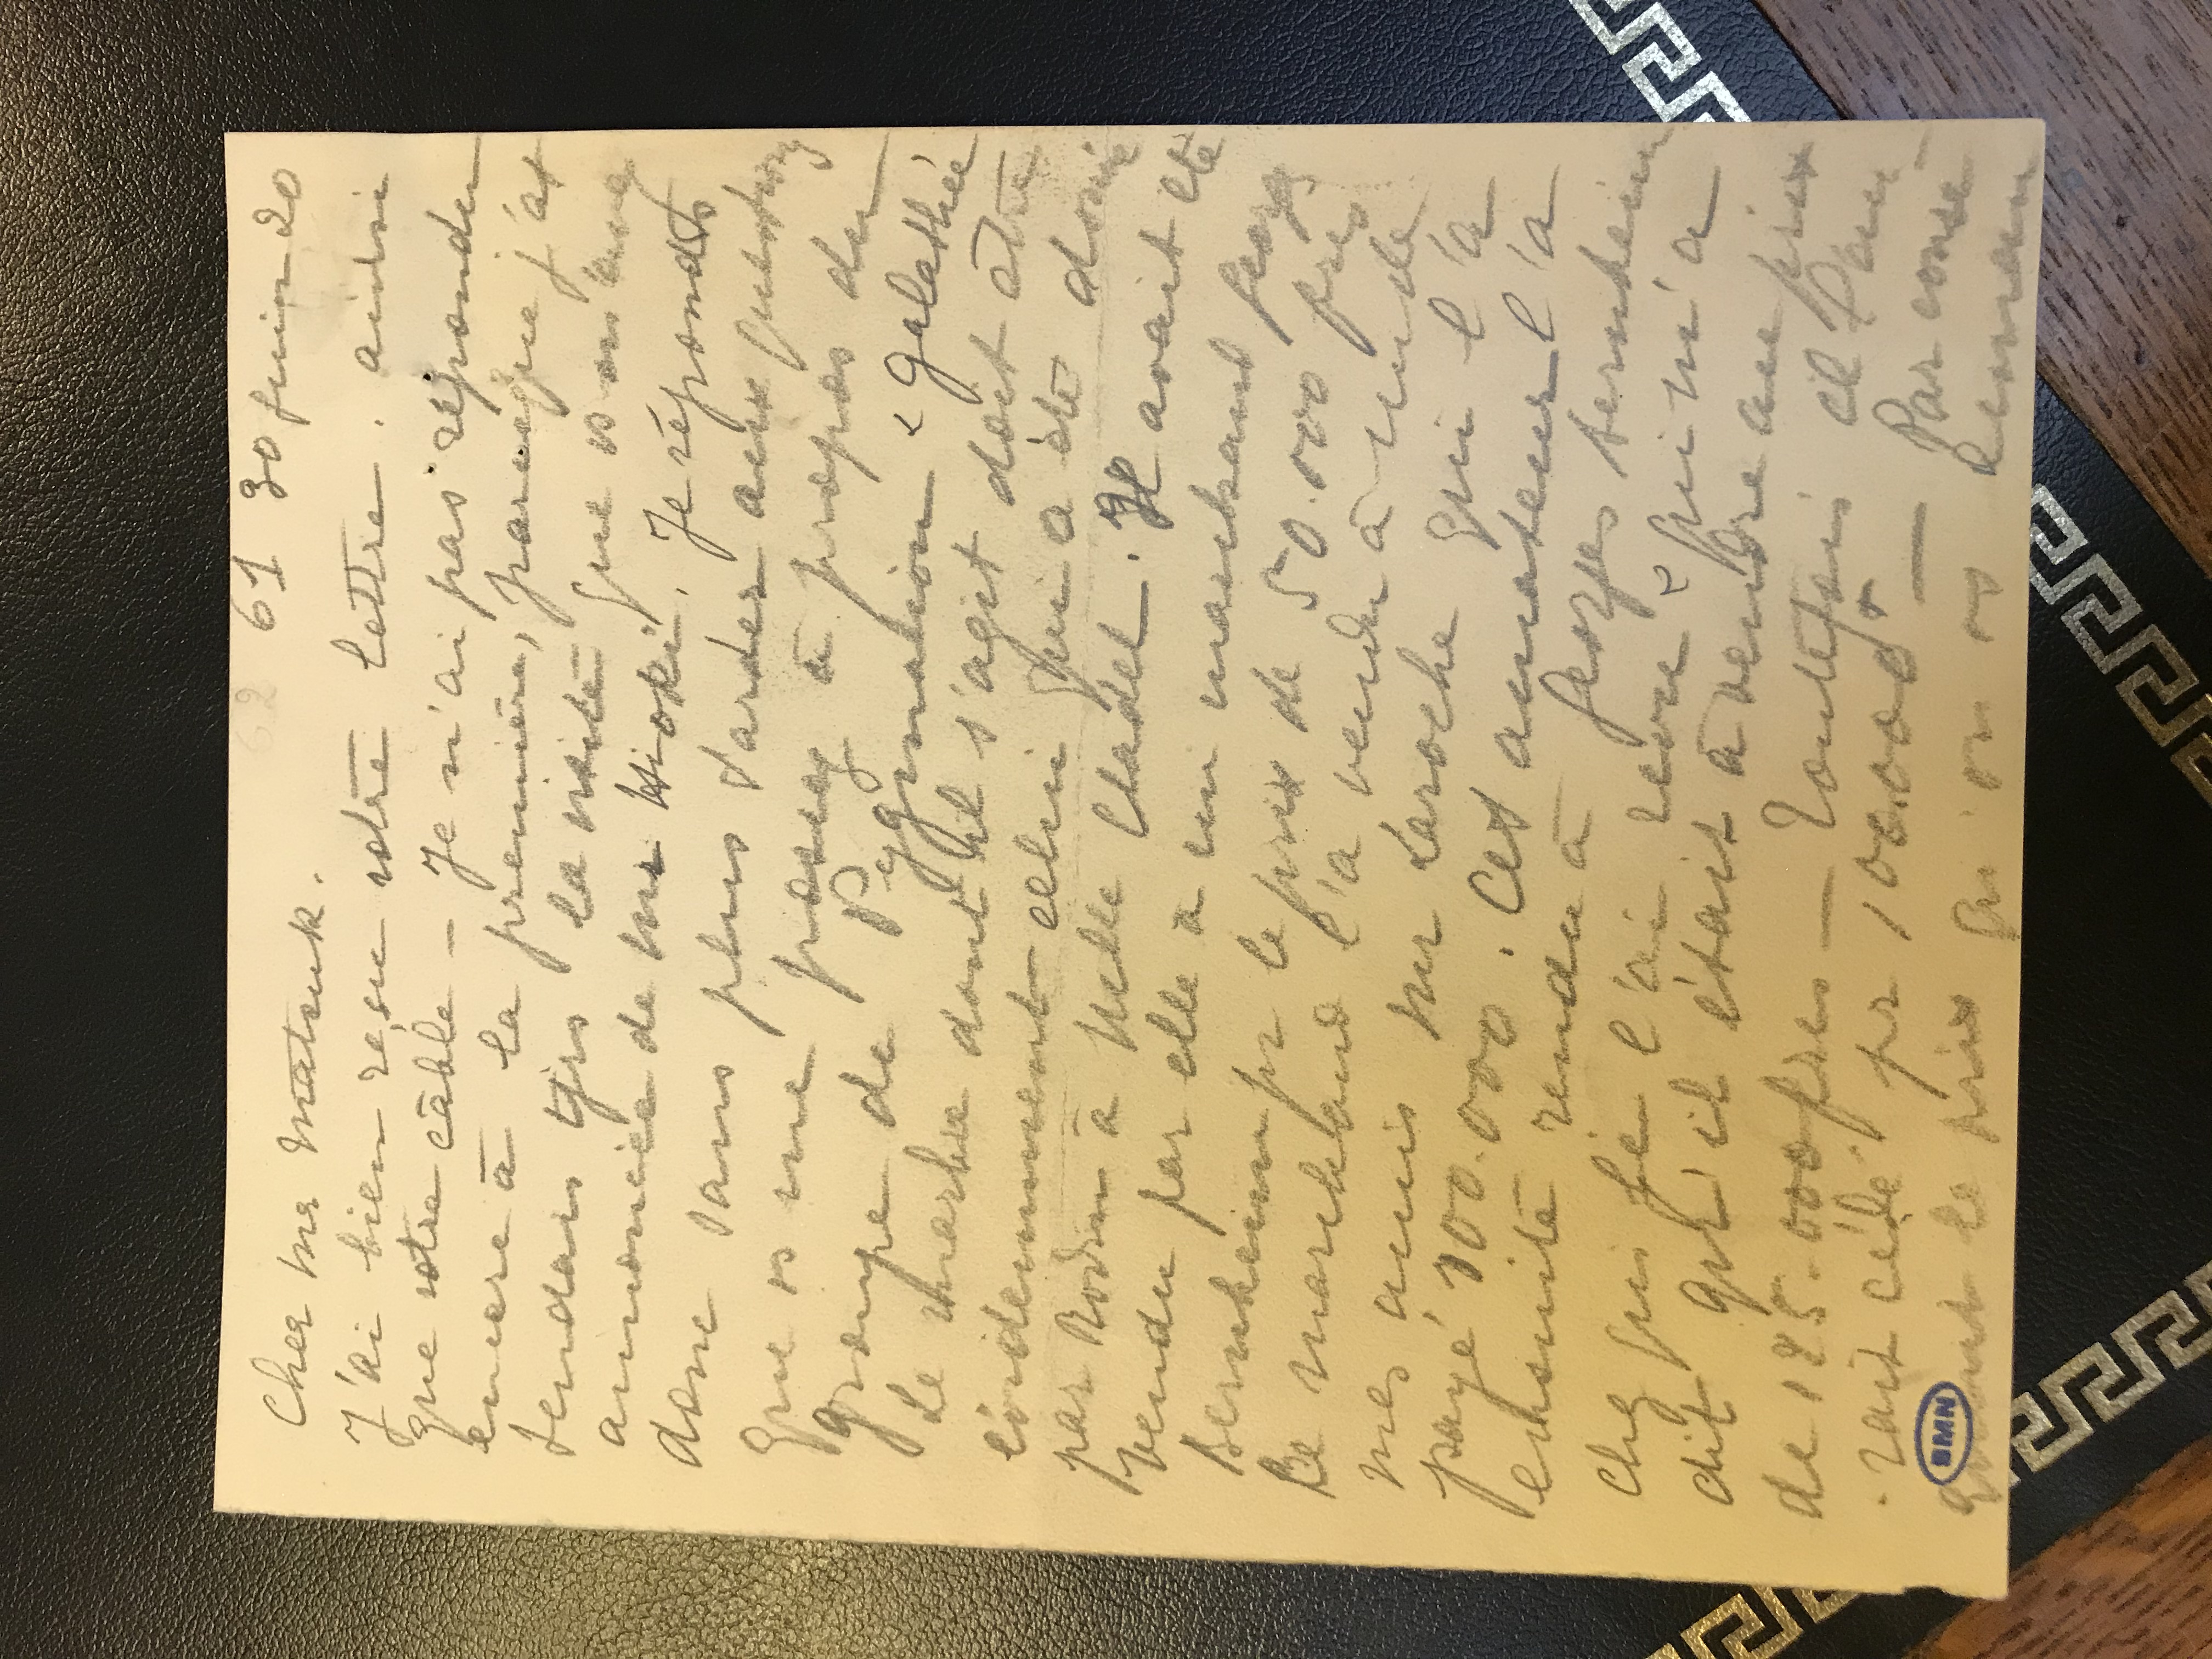 62
61 30 juin 20
Cher Mr Matsuk.
J'ai bien reçu votre lettre. ainsi
que votre câble – Je n'ai pas répondu
encore à la première, parceque j'at
tendais tjrs la visite que vs m'avez
annoncée de Mr Hioki. Je réponds
donc sans plus tarder aux questions
que vs me posez à propos du
groupe de Pygmalion & Galathée
Le marbre dont il s'agit doit être
évidemment celui qui a été donné
par Rodin à Melle Cladel. Il avait été
vendu par elle à un marchand
Bernheim pr le prix de 50.000 frcs
Ce marchand l'a vendu à un de
mes amis Mr Laroche qui l'a
payé 100.000. Cet amateur l'a
ensuite rendu à Georges Bernheim
chez qui je l'ai revu & qui m'a
dit qu'il était à vendre au prix
de 125.000 frcs — Toutefois il l'au-
rait cédé pr 100.000 f — Par consé-
quent le prix qu'on vs demande
BMN